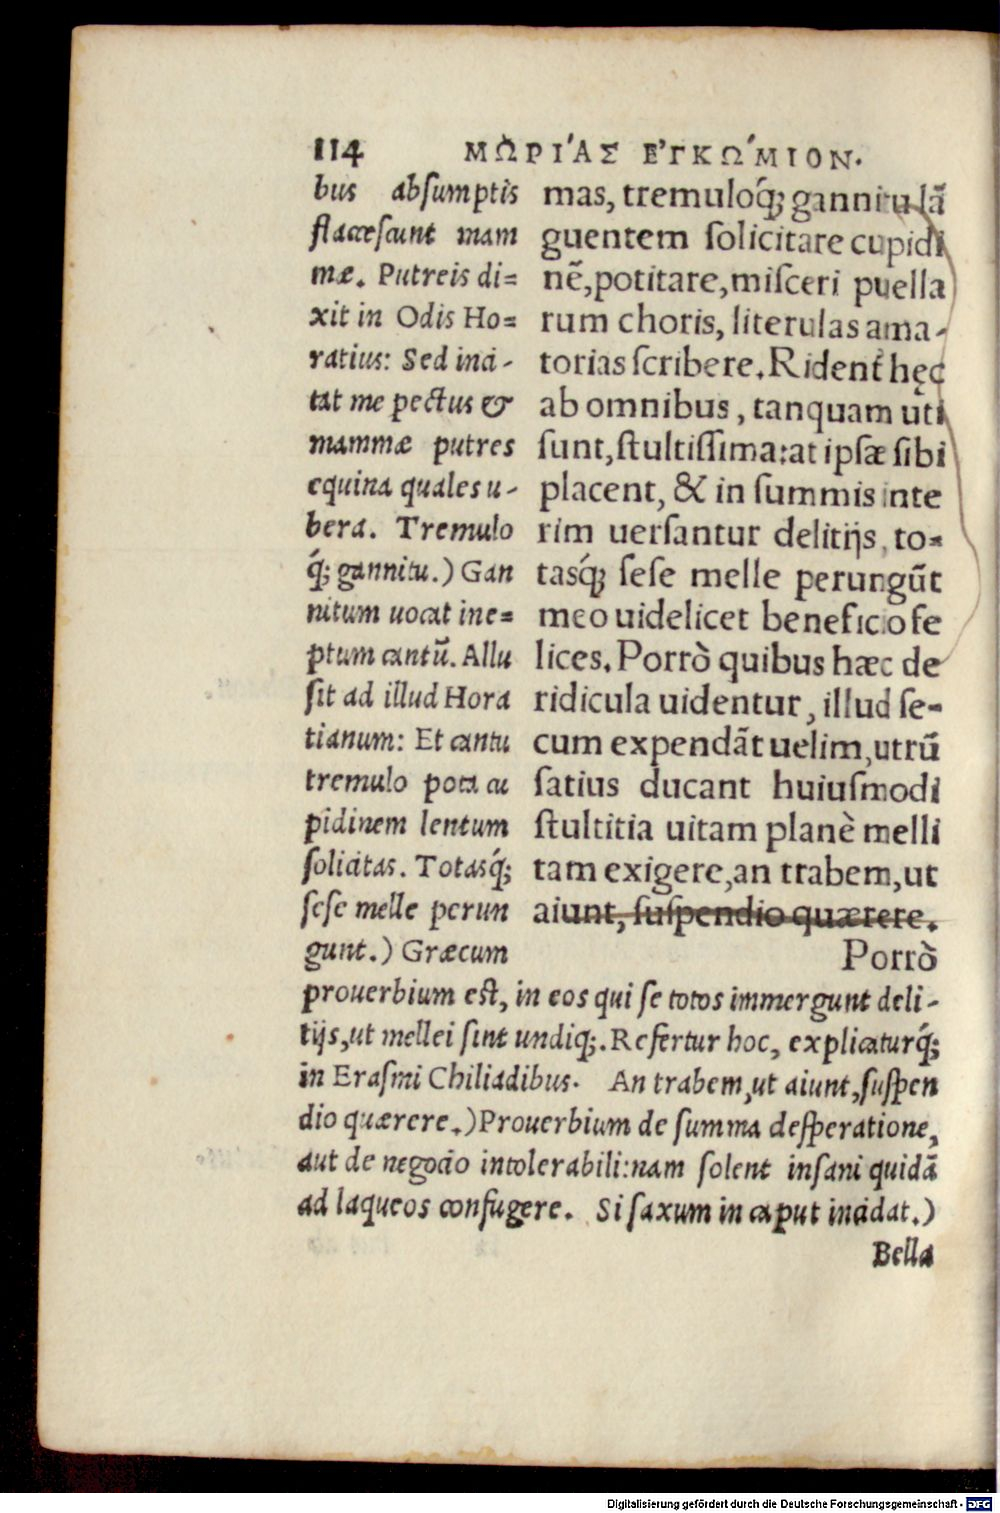 114 ΜΩΡΙ´ΑΣ ΕʼΓΚΩ´ΜΙΟΝ.
bus absumptis
flaccescunt mam
mæ. Putreis di=
xit in Odis Ho=
ratius: Sed inci-
tat me pectus &
mammæ putres
equina quales u-
bera. Tremulo
q́; gannitu.) Gan
nitum uocat ine=
ptum cantũ. Allu
sit ad illud Hora
tianum: Et cantu
tremulo pota cu
pidinem lentum
solicitas. Totasq́;
sese melle perun
gunt.) Græcum
mas, tremuloq́; gannitu lã
guentem solicitare cupidi
nẽ, potitare, misceri puella
rum choris, literulas ama-
torias scribere. Ridenť hęc
ab omnibus, tanquam uti
sunt, stultissima: at ipsæ sibi
placent, & in summis inte
rim uersantur delitijs, to=
tasq́; sese melle perungũt
meo uidelicet beneficio fe
lices. Porrò quibus hæc de
ridicula uidentur, illud se-
cum expendãt uelim, utrũ
satius ducant huiusmodi
stultitia uitam planè melli
tam exigere, an trabem, ut
aiunt, suspendio quærere.
Porrò
prouerbium est, in eos qui se totos immergunt deli-
tijs, ut mellei sint undiq;. Refertur hoc, explicaturq́;
in Erasmi Chiliadibus. An trabem, ut aiunt, suspen
dio quærere.) Prouerbium de summa desperatione,
aut de negocio intolerabili: nam solent insani quidã
ad laqueos confugere. Si saxum in caput incidat.)
Bella
Digitalisierung gefördert durch die Deutsche Forschungsgemeinschaft - DFG